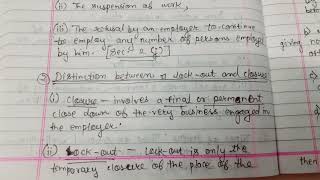 (ii) The suspension of work,
(iii) The refusal by an employer to continue
to employ any number of persons employed
by him. [Sec - 2 (l)]
② Distinction between of Lock-out and closure
(i) Closure - involves a final or permanent
close down of the very business engaged in
the employer.
(ii) Lock-out - Lock-out is only the
temporary closure of the place of the
giving
no
then